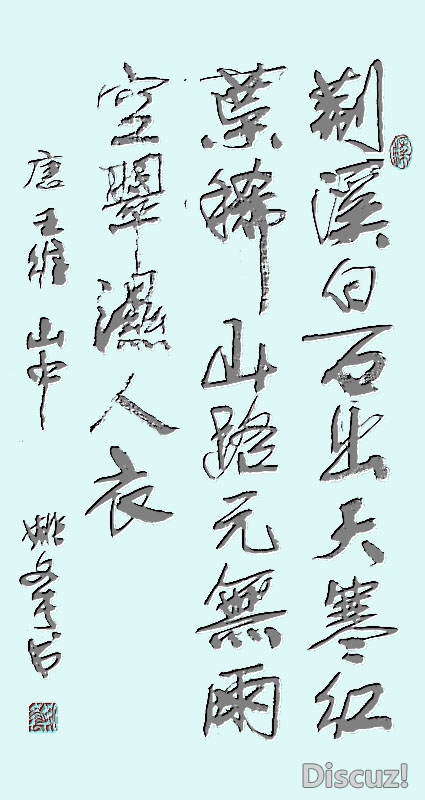 荆溪白石出天寒红
葉稀山路元無雨
空翠濕人衣
唐 王维 山中
姚
Discuz!